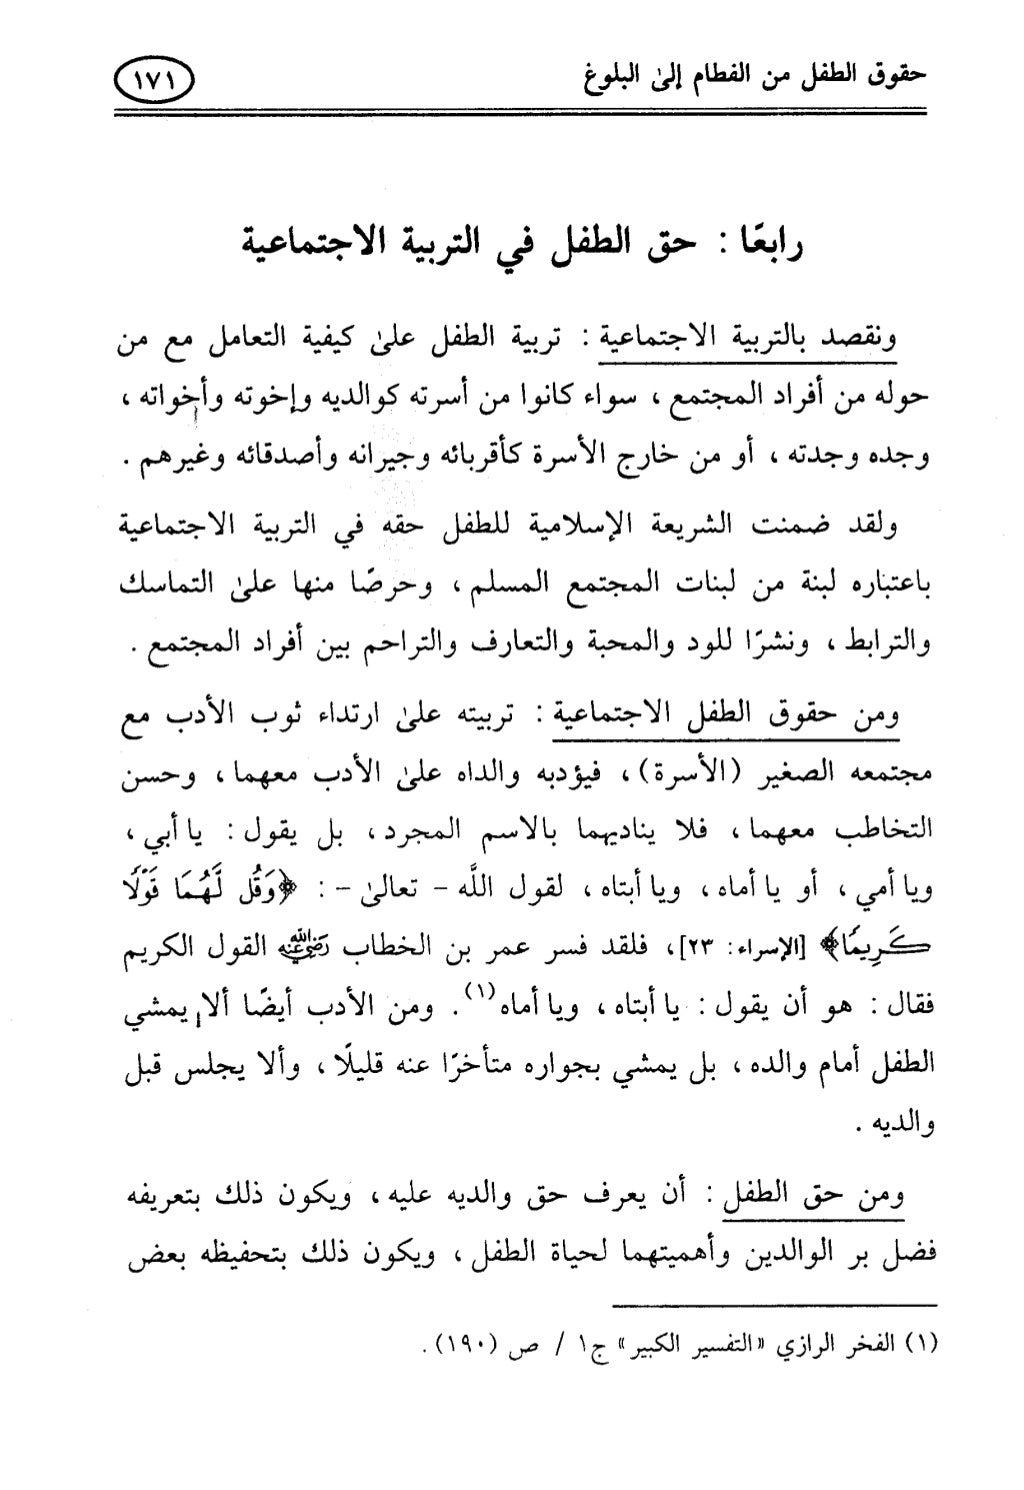 حقوق الطفل من الفطام إلى البلوغ
١٧١
رابعًا : حق الطفل في التربية الاجتماعية
ونقصد بالتربية الاجتماعية : تربية الطفل على كيفية التعامل مع من
حوله من أفراد المجتمع ، سواء كانوا من أسرته كوالديه وإخوته وأخواته ،
وجده وجدته ، أو من خارج الأسرة كأقربائه وجيرانه وأصدقائه وغيرهم .
ولقد ضمنت الشريعة الإسلامية للطفل حقه في التربية الاجتماعية
باعتباره لبنة من لبنات المجتمع المسلم ، وحرصًا منها على التماسك
والترابط ، ونشرًا للود والمحبة والتعارف والتراحم بين أفراد المجتمع .
ومن حقوق الطفل الاجتماعية : تربيته على ارتداء ثوب الأدب مع
مجتمعه الصغير (الأسرة) ، فيؤدبه والداه على الأدب معهما ، وحسن
التخاطب معهما ، فلا يناديهما بالاسم المجرد ، بل يقول : يا أبي ،
ويا أمي ، أو يا أماه ، ويا أبتاه ، لقول اللَّه - تعالى - : ﴿وَقُل لَّهُمَا قَوْلًا
كَرِيمًا﴾ [الإسراء: ٢٣] ، فلقد فسر عمر بن الخطاب رَضِيَ اللَّهُ عَنْهُ القول الكريم
فقال : هو أن يقول : يا أبتاه ، ويا أماه (١) . ومن الأدب أيضًا ألا يمشي
الطفل أمام والده ، بل يمشي بجواره متأخرًا عنه قليلًا ، وألا يجلس قبل
والديه .
ومن حق الطفل : أن يعرف حق والديه عليه ، ويكون ذلك بتعريفه
فضل بر الوالدين وأهميتهما لحياة الطفل ، ويكون ذلك بتحفيظه بعض
(١) الفخر الرازي «التفسير الكبير» ج١ / ص (١٩٠) .